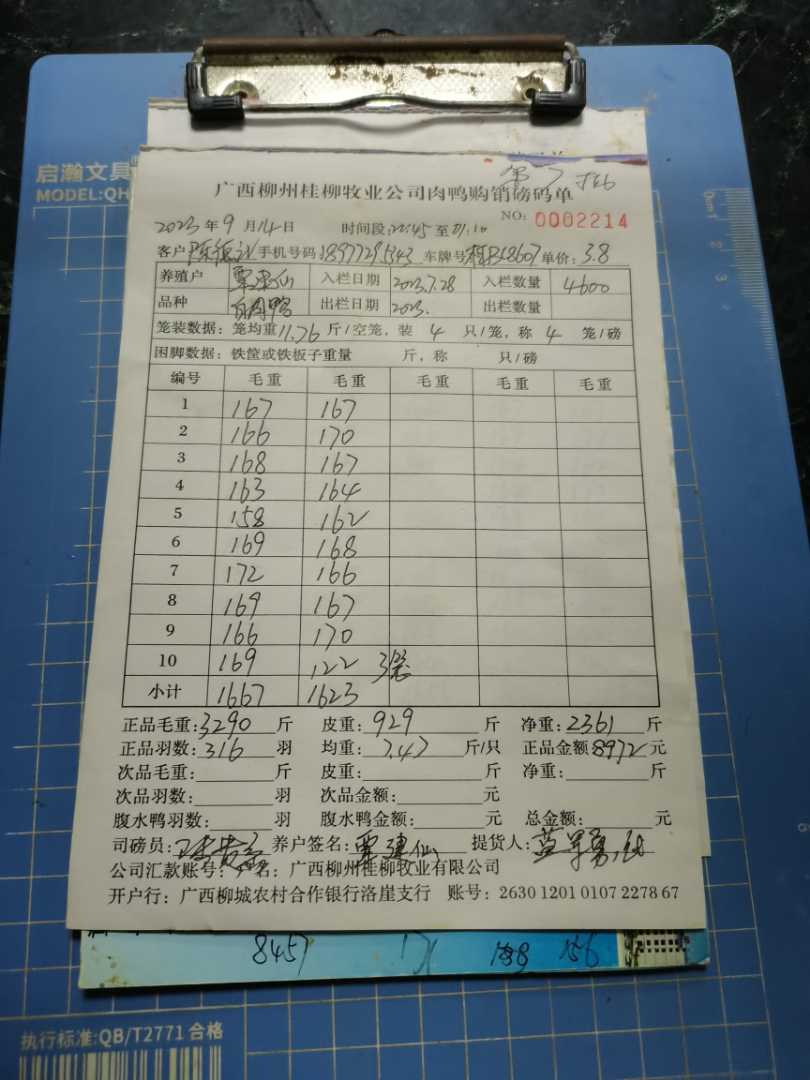 启瀚文具
MODEL:QH
第7
广西柳州桂柳牧业公司肉鸭购销磅码单
NO: 0002214
2023年9月14日 时间段: 至
客户 手机号码: 车牌号 单价: 3.8
养殖户 覃建仙 入栏日期 2023.7.28 入栏数量 4600
品种 白肉鸭 出栏日期 2023. 出栏数量
笼装数据: 笼均重11.76斤/空笼, 装 4 只/笼, 称 4 笼/磅
困脚数据: 铁筐或铁板子重量 斤, 称 只/磅
编号 毛重 毛重 毛重 毛重 毛重
1 167 167
2 166 170
3 168 167
4 163 164
5 158 162
6 169 168
7 172 166
8 169 167
9 166 170
10 169 122 3笼
小计 1667 1623
正品毛重: 3290 斤 皮重: 929 斤 净重: 2361 斤
正品羽数: 316 羽 均重: 7.47 斤/只 正品金额 8972 元
次品毛重: 斤 皮重: 斤 净重: 斤
次品羽数: 羽 次品金额: 元
腹水鸭羽数: 羽 腹水鸭金额: 元 总金额: 元
司磅员: 养户签名: 覃建仙 提货人:
公司汇款账号: 户名: 广西柳州桂柳牧业有限公司
开户行: 广西柳城农村合作银行洛崖支行 账号: 2630 1201 0107 2278 67
8457 171 156
执行标准:QB/T2771 合格